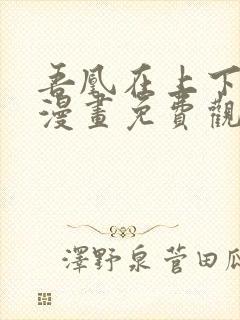 吾凰在上下
漫畫免費觀
澤野泉 菅田瓜